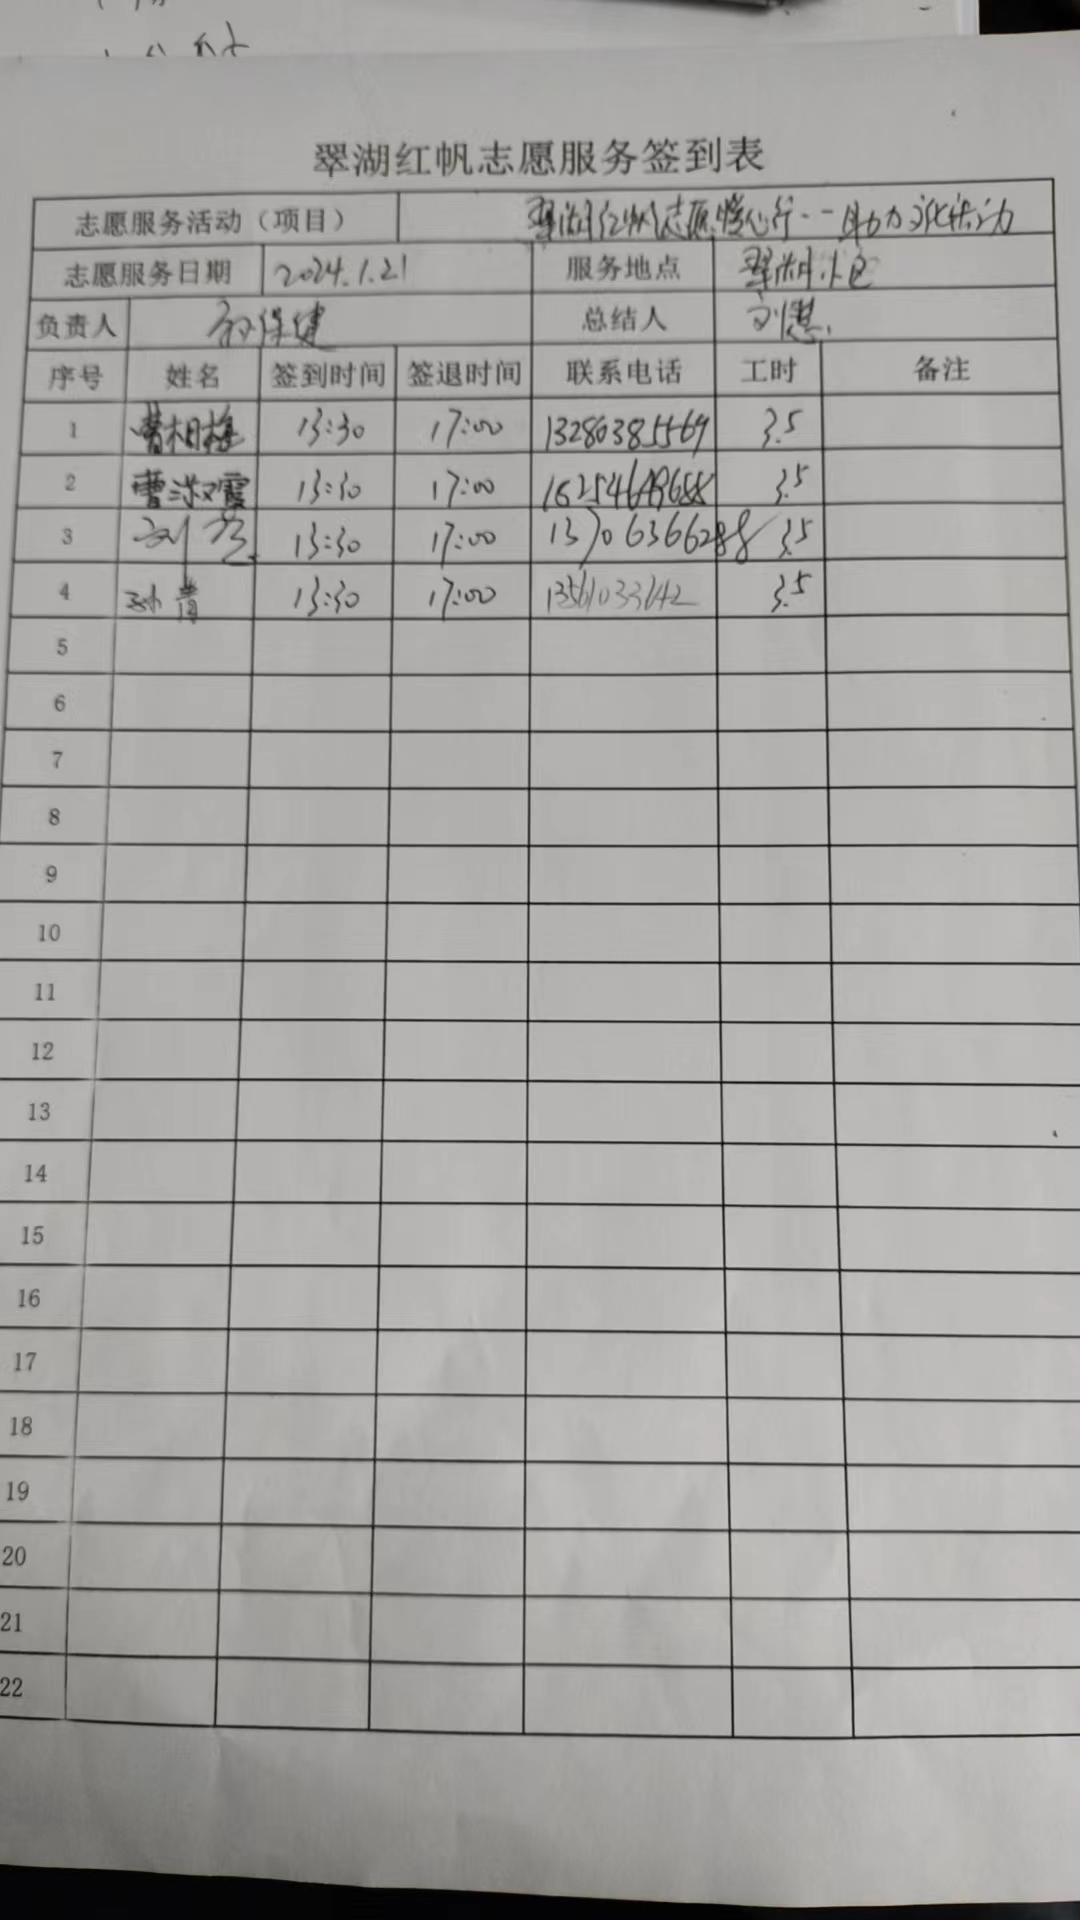 翠湖红帆志愿服务签到表
志愿服务活动（项目） 翠湖红帆志愿暖心行--助力
志愿服务日期 2024.1.21 服务地点 翠湖小区
负责人 保健 总结人 刘慧
序号 姓名 签到时间 签退时间 联系电话 工时 备注
1 曹相梅 13:30 17:00 13280385569 3.5
2 曹淑霞 13:30 17:00 3.5
3 刘 13:30 17:00 13706366288 3.5
4 孙青 13:30 17:00 3.5
5
6
7
8
9
10
11
12
13
14
15
16
17
18
19
20
21
22